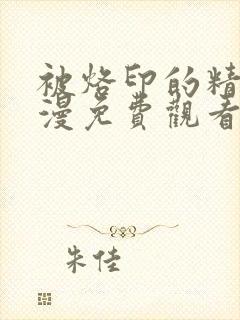 被烙印的精
漫免費觀看
朱佳